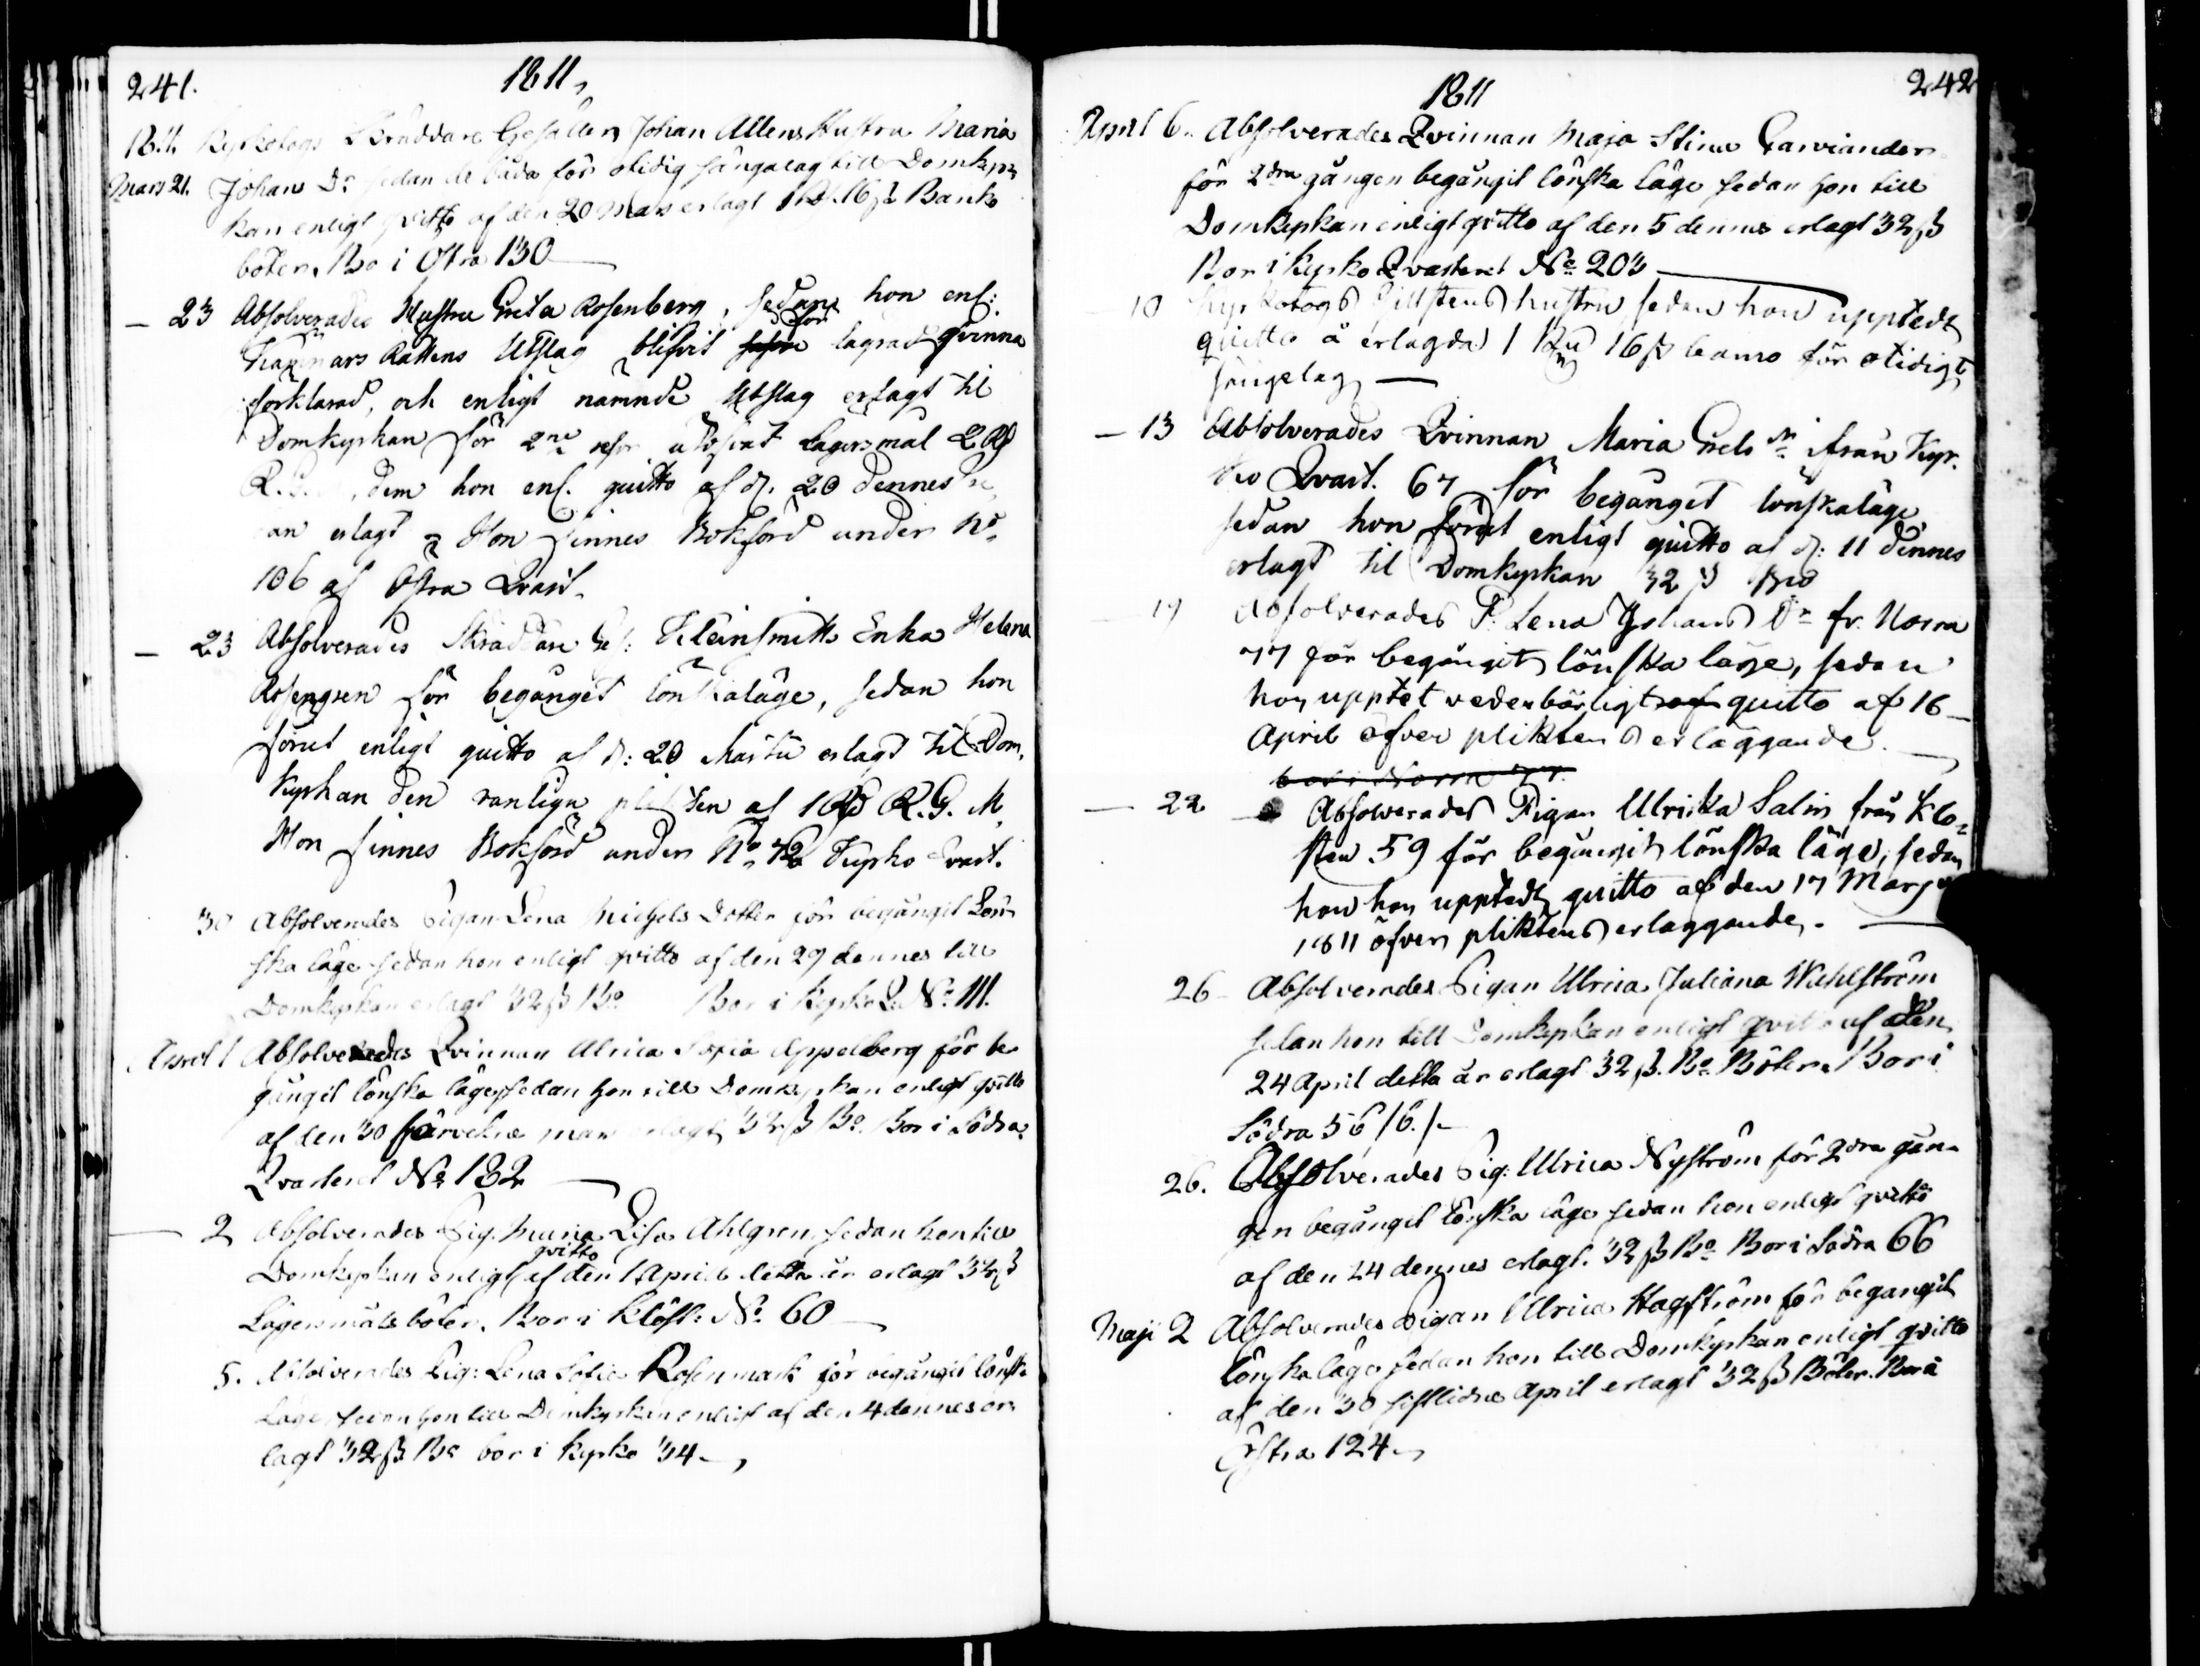 241.
1811,
18.11. Kyrkotogs Skräddare Gesällen Johan Allens Hustru Maria
Mars 21. Johans Dr sedan de båda för otidig sängalag till Domkyr
kan enligt qvitto af den 20 Mars erlagt 1 Rd. 16 ß Banko
böter. Bo i Östra 130
— 23 Absolverades Hustru Greta Rosenberg, sedan hon enl:
Kämnärs Rättens Utslag blifvit för lägrad qvinna
förklarad, och enligt nämnde Utslag erlagt til
Domkyrkan för 2ne lägersmål 2 Rd
R. G. , dem hon enl. quitto af d. 20 dennes
an erlagt Hon finnes Bokförd under No
106 af Östra Qvart.
— 23 Absolverades Skräddare Ges: Kleinsmitts Enka Helena
Rosengren för begånget lönskaläge, sedan hon
förut enligt quitto af d: 20 Martii erlagt til Dom,
kyrkan den vanliga plikten af 1 Rd R. G. M.
Hon finnes Bokförd under No 72 Kyrko Qvart.
30 Absolverades Pigan Lena Michels Dotter för begångit Lön-
ska läge sedan hon enligt qvitto af den 29 dennes till
Domkyrkan erlagt 32 ß Bo Bor i Kyrko Q. No 111.
April 1 Absolverades Qvinnan Ulrica Sofia Appelberg för be
gångit lönska läge sedan hon till Domkyrkan enligt qvitto
af den 30 förvekne mars erlagt 32 ß Bo. Bor i Södra
Qvarteret No 132
— 2 Absolverades Pig. Maria Lisa Ahlgren sedan hon till
qvitto
Domkyrkan enligt af den 1 April detta år erlagt 32 ß
Lägersmåls böter. Bor i Klöst: No 60
5. Absolverades Pig: Lena Sofia Rosenmark för begångit lönska
Läge sedan hon till Domkyrkan enligt af den 4 dennes er-
lagt 32 ß Bo bor i kyrko 34
1811
242
April 6. Absolverades Qvinnan Maja Stina
för 2dra gången begångit lönska läge sedan hon till
Domkyrkan enligt qvitto af den 5 dennes erlagt 32 ß
Bor i Kyrko Qvarteret No 203
10 Kyrkotogs hustru sedan hon upptedt
quitto å erlagda 1 16 ß banco för otidigt
sängelag —
— 13 Absolverades Qvinnan Maria ifrån Kyr-
ko Qvart. 67 för begånget lönskaläge
sedan hon förut enligt quitto af d: 11 dennes
erlagt til Domkyrkan 32 ß Bco
17 Absolverades P. Lena Johans Dr fr. Norra
77 för begångit lönska läge, sedan
hon upptet vederbörligt quitto af 16
April öfver pliktens erläggande.
bor i Norra 77.
— 22 Absolverades Pigan Ulrika Salin från Klo-
ster 59 för begångit lönska läge, sedan
hon hon upptedt quitto af den 17 Mars
1811 öfver pliktens erläggande.
26 Absolverades Pigan Ulrica Juliana Wahlström
sedan hon till Domkyrkan enligt qvitto af den
24 April detta år erlagt 32 ß. Bo Böter. Bor i
Södra 56 /6./
26. Absolverades Pig: Ulrica Nyström för 2dra gån-
gen begångit lönska läge sedan hon enligt qvitto
af den 24 dennes erlagt. 32 ß Bo Bor i Södra 66
Maji 2 Absolverades Pigan Ulrica Hagström för begångit
lönska läge sedan hon till Domkyrkan enligt qvitto
af den 30 sistlidne April erlagt 32 ß Böter. Bor i
Östra 124